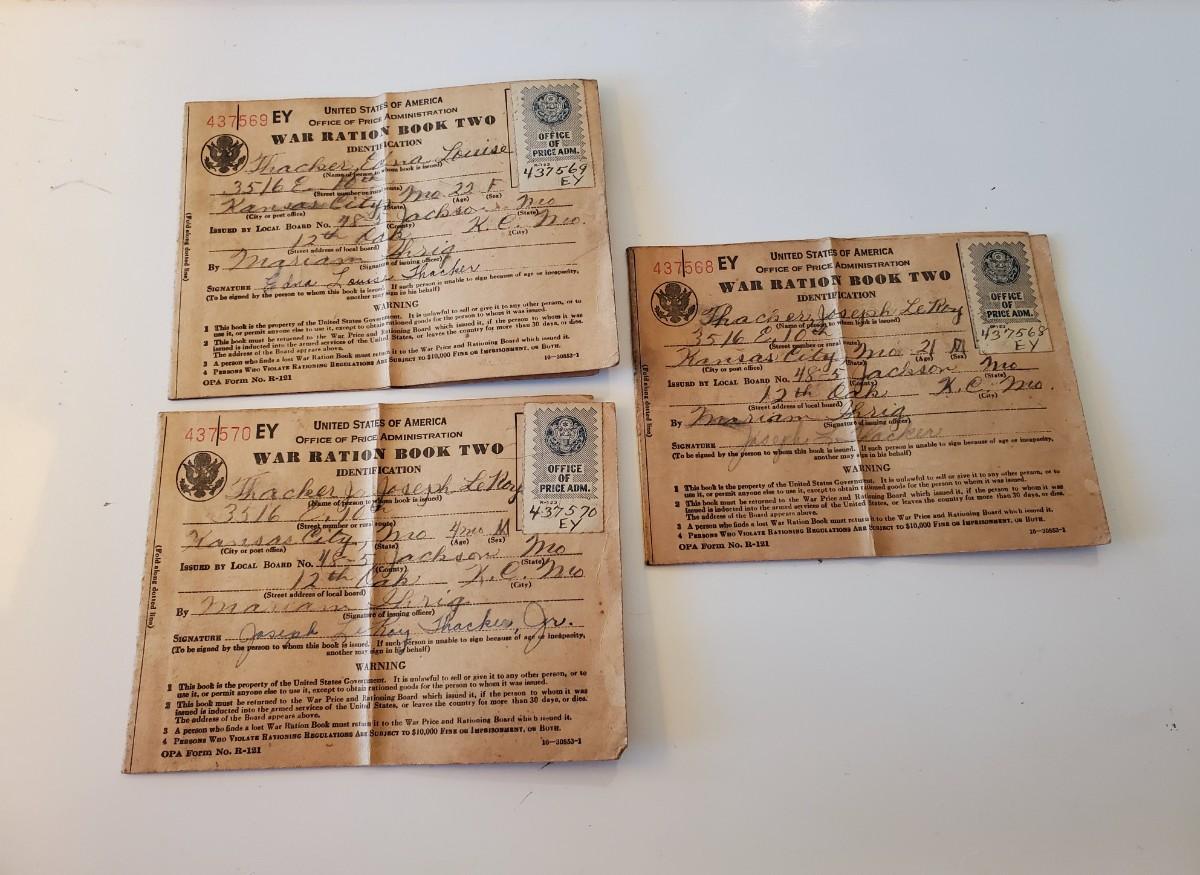 437569 EY
UNITED STATES OF AMERICA
OFFICE OF PRICE ADMINISTRATION
WAR RATION BOOK TWO
IDENTIFICATION
OFFICE
OF
PRICE ADM.
437569
EY
Thacker, Edna Louise
(Name of person to whom book is issued)
3516 E. 10th
(Street number or rural route)
Kansas City Mo 22 F
(City or post office) (State) (Age) (Sex)
ISSUED BY LOCAL BOARD No. 48-5 Jackson Mo
(County) (State)
12th Oak K.C. Mo.
(Street address of local board) (City)
By Mariam Ihrig
(Signature of issuing officer)
SIGNATURE Edna Louise Thacker
(To be signed by the person to whom this book is issued. If such person is unable to sign because of age or incapacity,
another may sign in his behalf)
WARNING
1 This book is the property of the United States Government. It is unlawful to sell or give it to any other person, or to
use it, or permit anyone else to use it, except to obtain rationed goods for the person to whom it was issued.
2 This book must be returned to the War Price and Rationing Board which issued it, if the person to whom it was
issued is inducted into the armed services of the United States, or leaves the country for more than 30 days, or dies.
The address of the Board appears above.
3 A person who finds a lost War Ration Book must return it to the War Price and Rationing Board which issued it.
4 PERSONS WHO VIOLATE RATIONING REGULATIONS ARE SUBJECT TO $10,000 FINE OR IMPRISONMENT, OR BOTH.
OPA Form No. R-121 16—30853-1
(Fold along dotted line)
437568 EY
UNITED STATES OF AMERICA
OFFICE OF PRICE ADMINISTRATION
WAR RATION BOOK TWO
IDENTIFICATION
OFFICE
OF
PRICE ADM.
437568
EY
Thacker, Joseph LeRoy
(Name of person to whom book is issued)
3516 E. 10th
(Street number or rural route)
Kansas City Mo 21 M
(City or post office) (State) (Age) (Sex)
ISSUED BY LOCAL BOARD No. 48-5 Jackson Mo
(County) (State)
12th Oak K.C. Mo.
(Street address of local board) (City)
By Mariam Ihrig
(Signature of issuing officer)
SIGNATURE Joseph L. Thacker
(To be signed by the person to whom this book is issued. If such person is unable to sign because of age or incapacity,
another may sign in his behalf)
WARNING
1 This book is the property of the United States Government. It is unlawful to sell or give it to any other person, or to
use it, or permit anyone else to use it, except to obtain rationed goods for the person to whom it was issued.
2 This book must be returned to the War Price and Rationing Board which issued it, if the person to whom it was
issued is inducted into the armed services of the United States, or leaves the country for more than 30 days, or dies.
The address of the Board appears above.
3 A person who finds a lost War Ration Book must return it to the War Price and Rationing Board which issued it.
4 PERSONS WHO VIOLATE RATIONING REGULATIONS ARE SUBJECT TO $10,000 FINE OR IMPRISONMENT, OR BOTH.
OPA Form No. R-121 16—30853-1
(Fold along dotted line)
437570 EY
UNITED STATES OF AMERICA
OFFICE OF PRICE ADMINISTRATION
WAR RATION BOOK TWO
IDENTIFICATION
OFFICE
OF
PRICE ADM.
437570
EY
Thacker, Joseph LeRoy
(Name of person to whom book is issued)
3516 E. 10th
(Street number or rural route)
Kansas City, Mo 4mo M
(City or post office) (State) (Age) (Sex)
ISSUED BY LOCAL BOARD No. 48-5 Jackson Mo
(County) (State)
12th Oak K.C. Mo
(Street address of local board) (City)
By Mariam Ihrig
(Signature of issuing officer)
SIGNATURE Joseph LeRoy Thacker, Jr.
(To be signed by the person to whom this book is issued. If such person is unable to sign because of age or incapacity,
another may sign in his behalf)
WARNING
1 This book is the property of the United States Government. It is unlawful to sell or give it to any other person, or to
use it, or permit anyone else to use it, except to obtain rationed goods for the person to whom it was issued.
2 This book must be returned to the War Price and Rationing Board which issued it, if the person to whom it was
issued is inducted into the armed services of the United States, or leaves the country for more than 30 days, or dies.
The address of the Board appears above.
3 A person who finds a lost War Ration Book must return it to the War Price and Rationing Board which issued it.
4 PERSONS WHO VIOLATE RATIONING REGULATIONS ARE SUBJECT TO $10,000 FINE OR IMPRISONMENT, OR BOTH.
OPA Form No. R-121 16—30853-1
(Fold along dotted line)